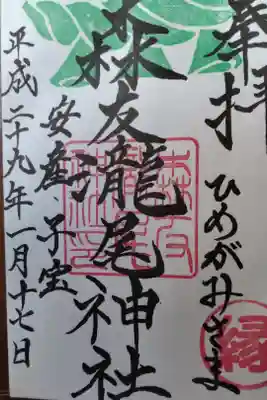 奉拝
ひめがみさま
縁
森友瀧尾神社
安産・子宝
平成二十九年一月十七日